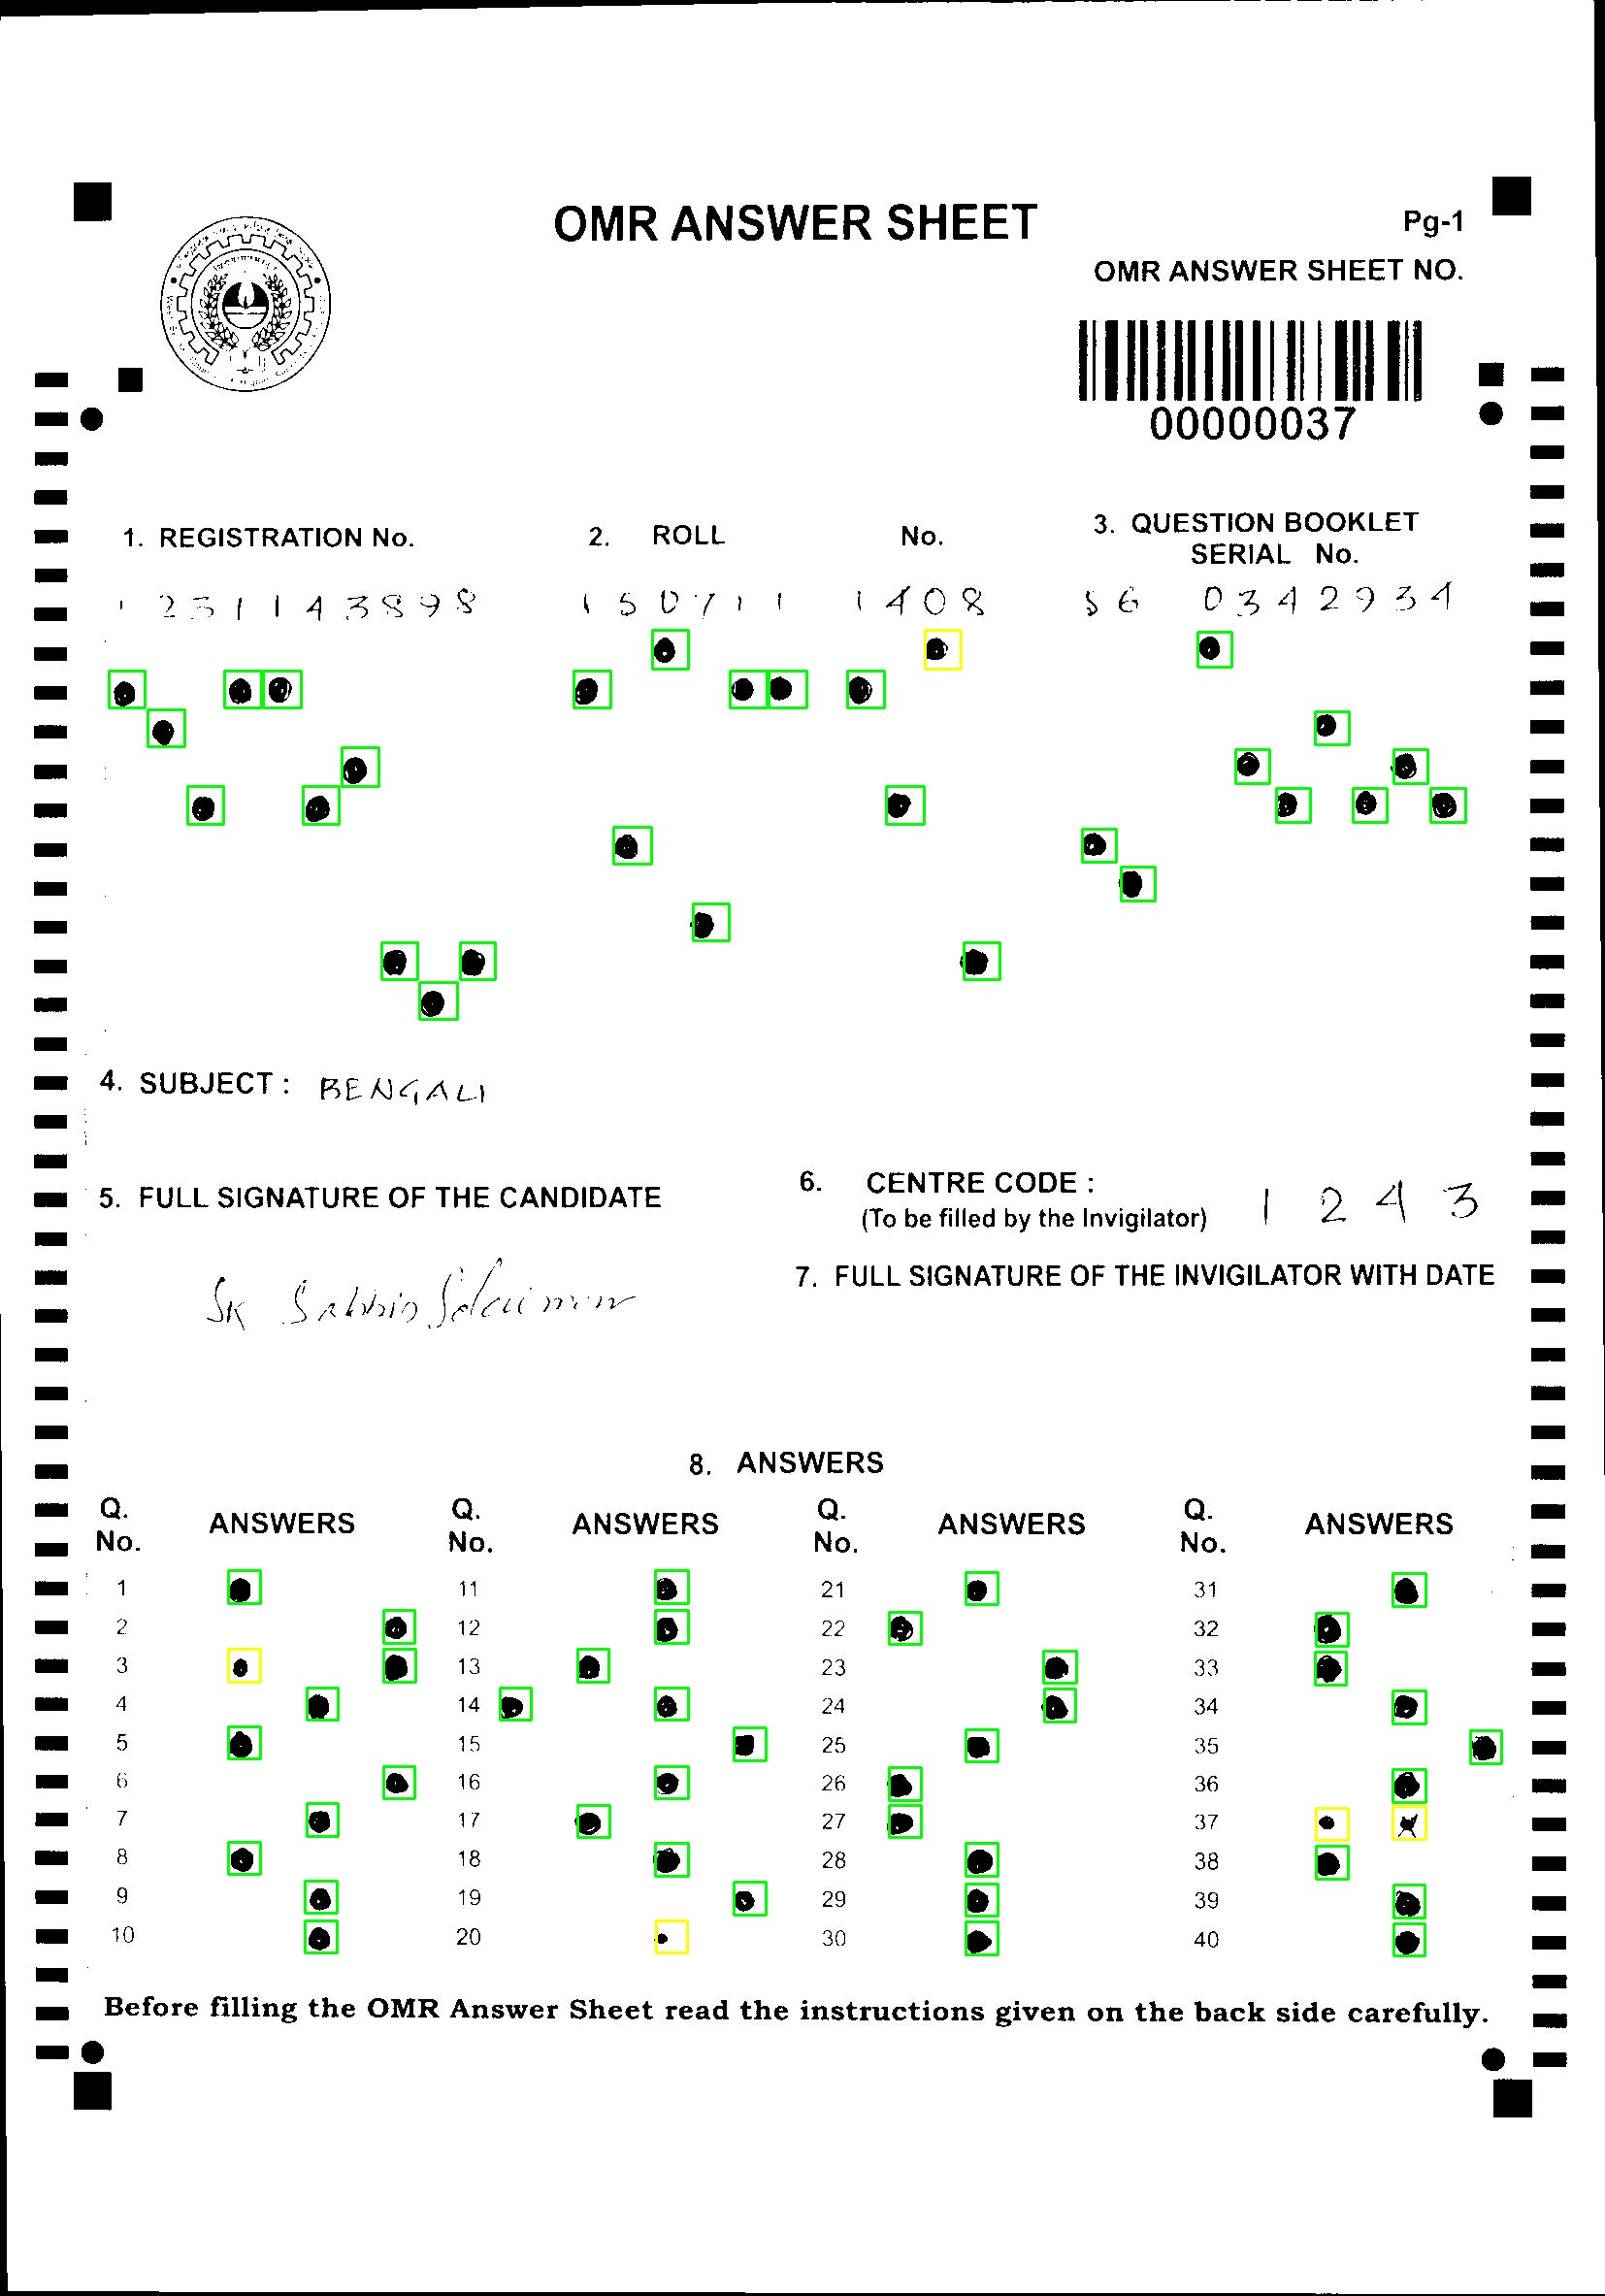 OMR ANSWER SHEET
Pg-1
OMR ANSWER SHEET NO.
00000037
1. REGISTRATION No.
2. ROLL No.
3. QUESTION BOOKLET
SERIAL No.
1 2 3 1 1 4 3 8 9 8
1 5 0 7 1 1 1 4 0 8
5 6 0 3 4 2 9 3 4
4. SUBJECT : BENGALI
5. FULL SIGNATURE OF THE CANDIDATE
6. CENTRE CODE : 1 2 4 3
(To be filled by the Invigilator)
7. FULL SIGNATURE OF THE INVIGILATOR WITH DATE
SK
8. ANSWERS
Q. No. ANSWERS Q. No. ANSWERS Q. No. ANSWERS Q. No. ANSWERS
1 11 21 31
2 12 22 32
3 13 23 33
4 14 24 34
5 15 25 35
6 16 26 36
7 17 27 37
8 18 28 38
9 19 29 39
10 20 30 40
Before filling the OMR Answer Sheet read the instructions given on the back side carefully.